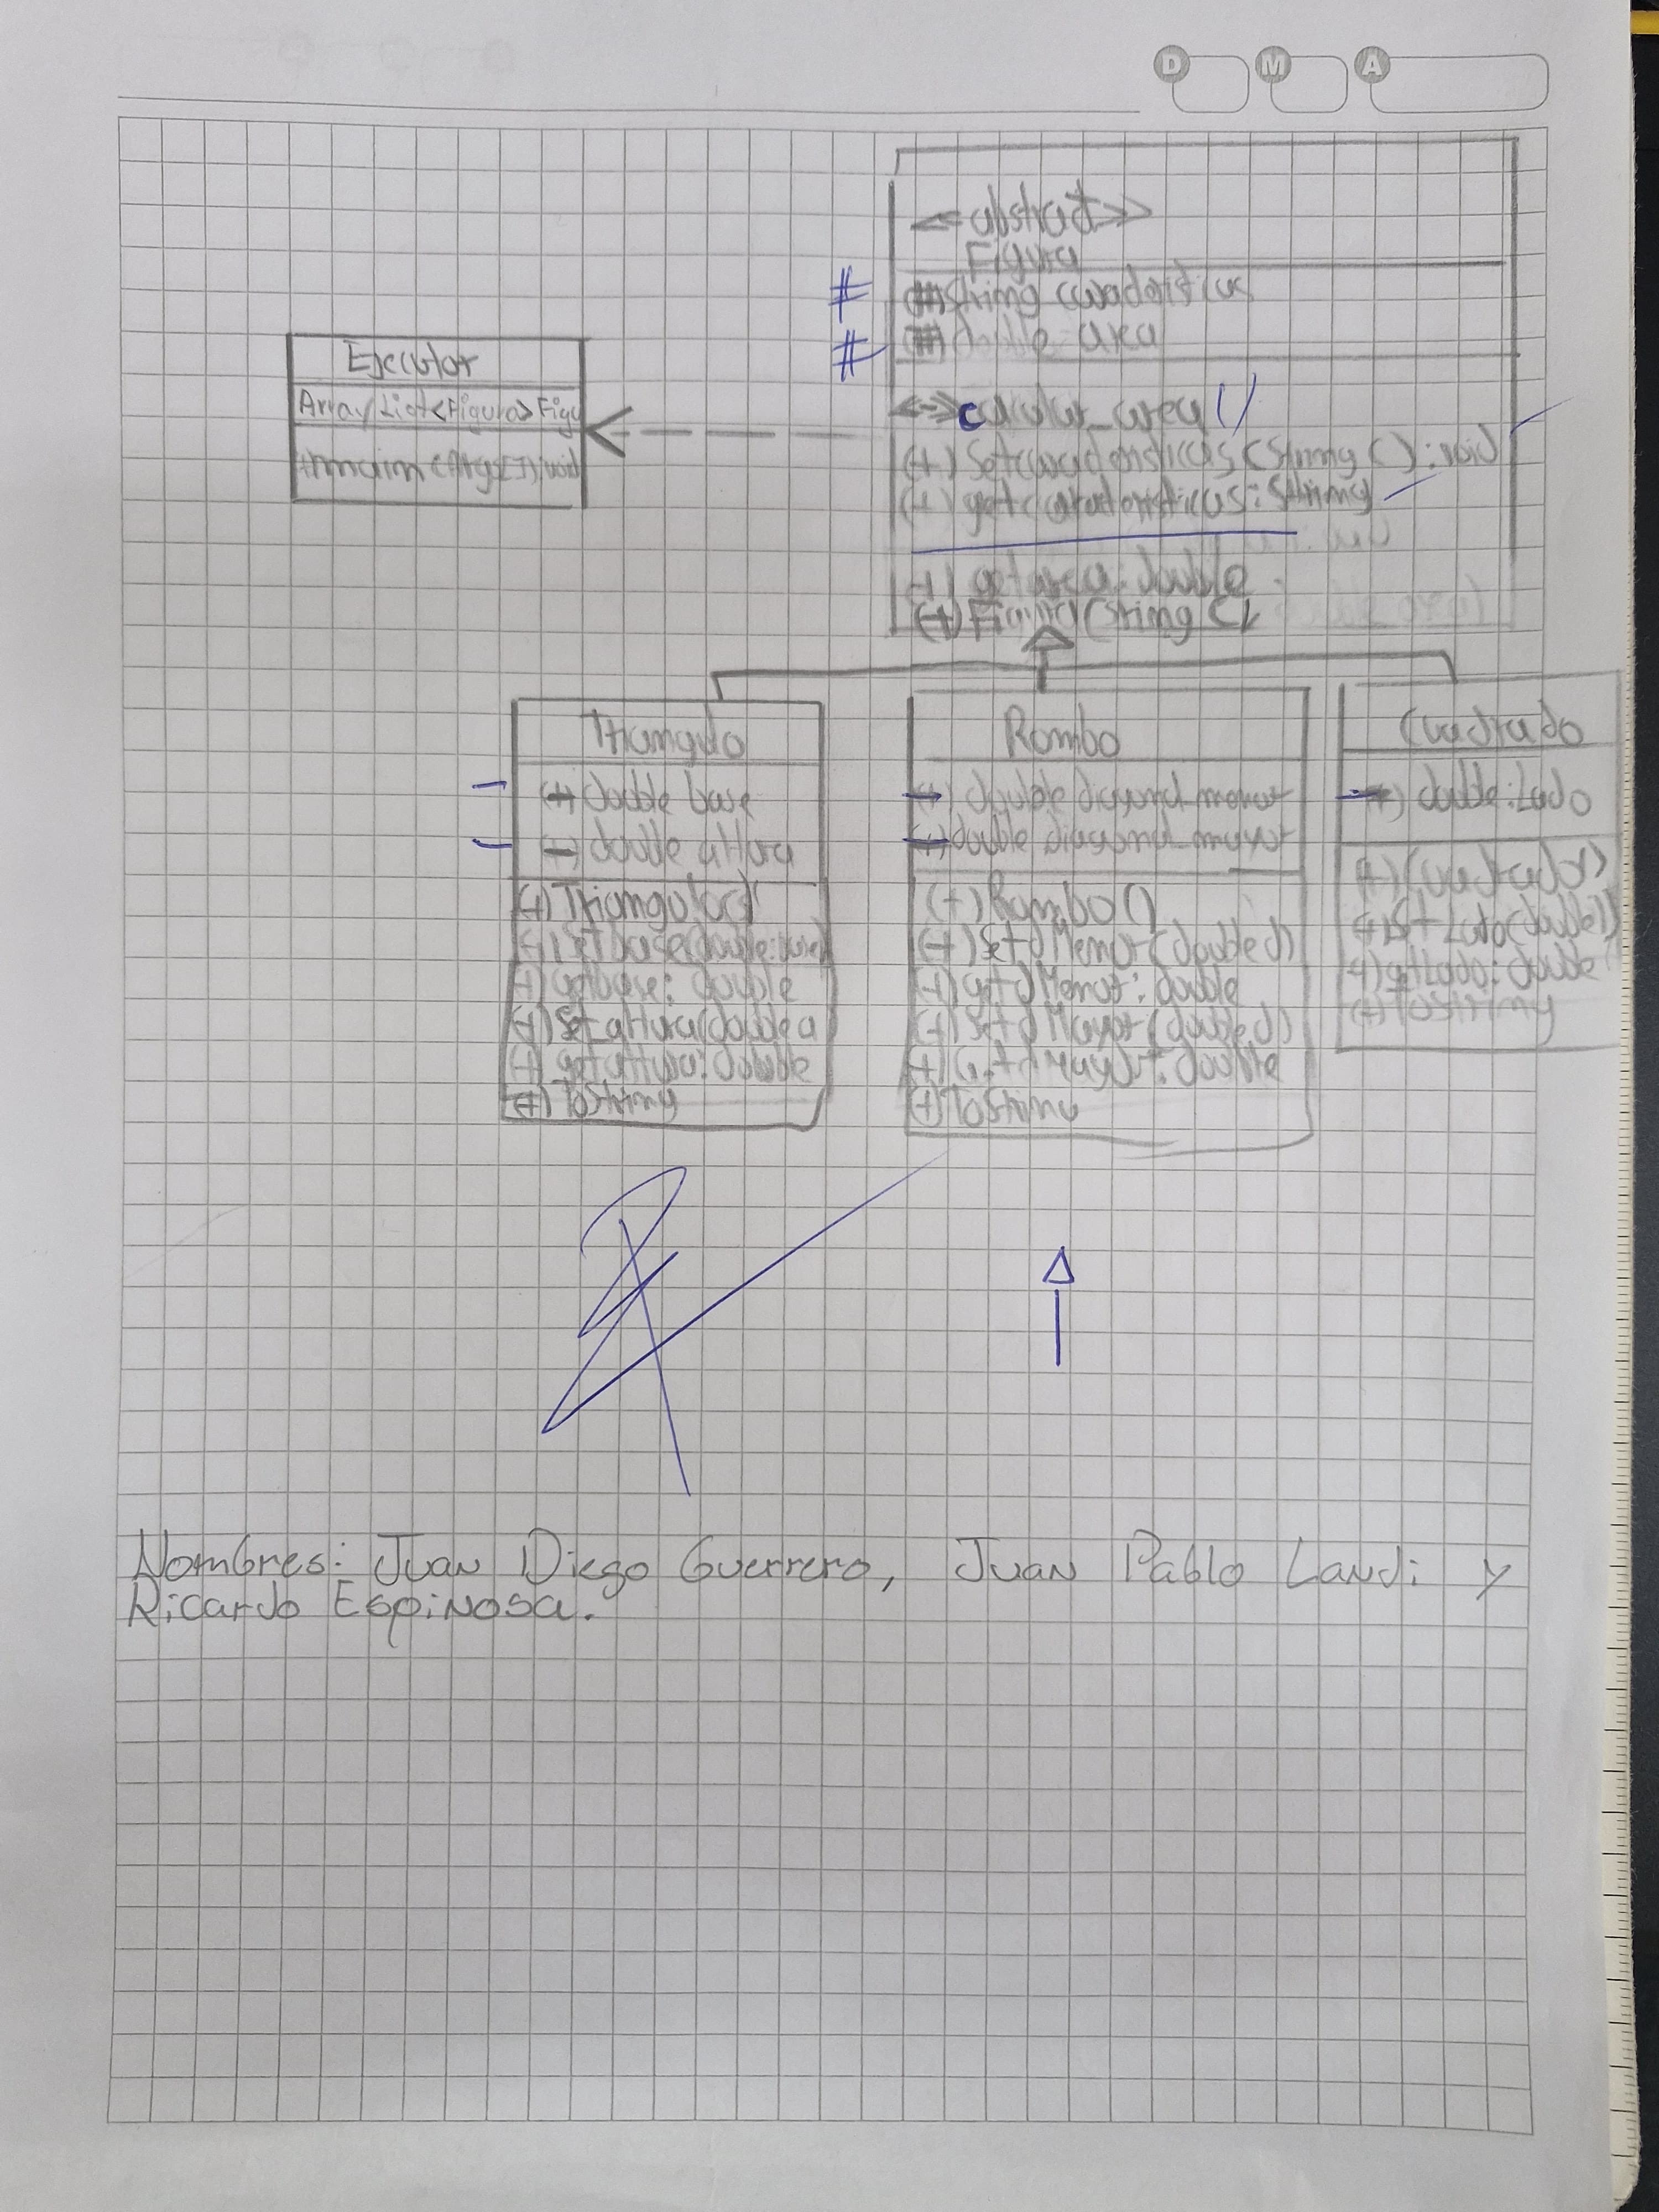 D M A
<<abstract>>
Figura
# (#) String caracteristicas
# (#) double area
Ejecutor
ArrayList<Figura> Figu
+main(Args[]):void
<-> calcular_area()
(+) Setcaracteristicas(String C):void
(+) getcaracteristicas: String
(+) getarea: double
(+) Figura(String C)
Triangulo
- double base
- double altura
(+) Triangulo()
(+) Set base(double
(+) getbase: double
(+) Set_altura(double a
(+) getaltura: double
(+) ToString
Rombo
- double diagonal_menor
- double diagonal_mayor
(+) Rombo()
(+) Set dMenor(double d)
(+) get dMenor: double
(+) Set dMayor(double d)
(+) Get dMayor: double
(+) ToString
Cuadrado
- double:Lado
(+) Cuadrado()
(+) Set Lado(double l)
(+) getLado: double
(+) ToString
Nombres: Juan Diego Guerrero, Juan Pablo Landi y
Ricardo Espinosa.